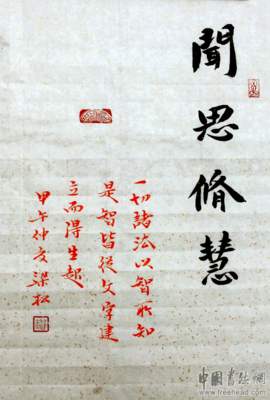 聞思脩慧
一切諸法以智所知
是智皆從文字建
立而得生起
甲午仲夏梁松
中国書法網
www.freehead.com